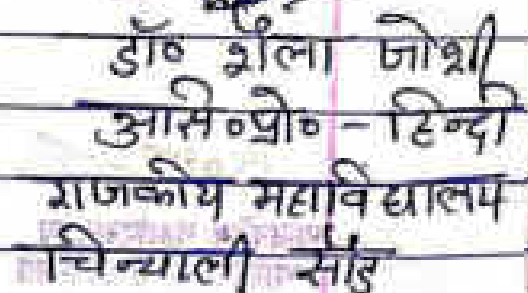 डॉ० शैला जोशी
आसि०प्रो० - हिन्दी
राजकीय महाविद्यालय
चिन्याली सौड